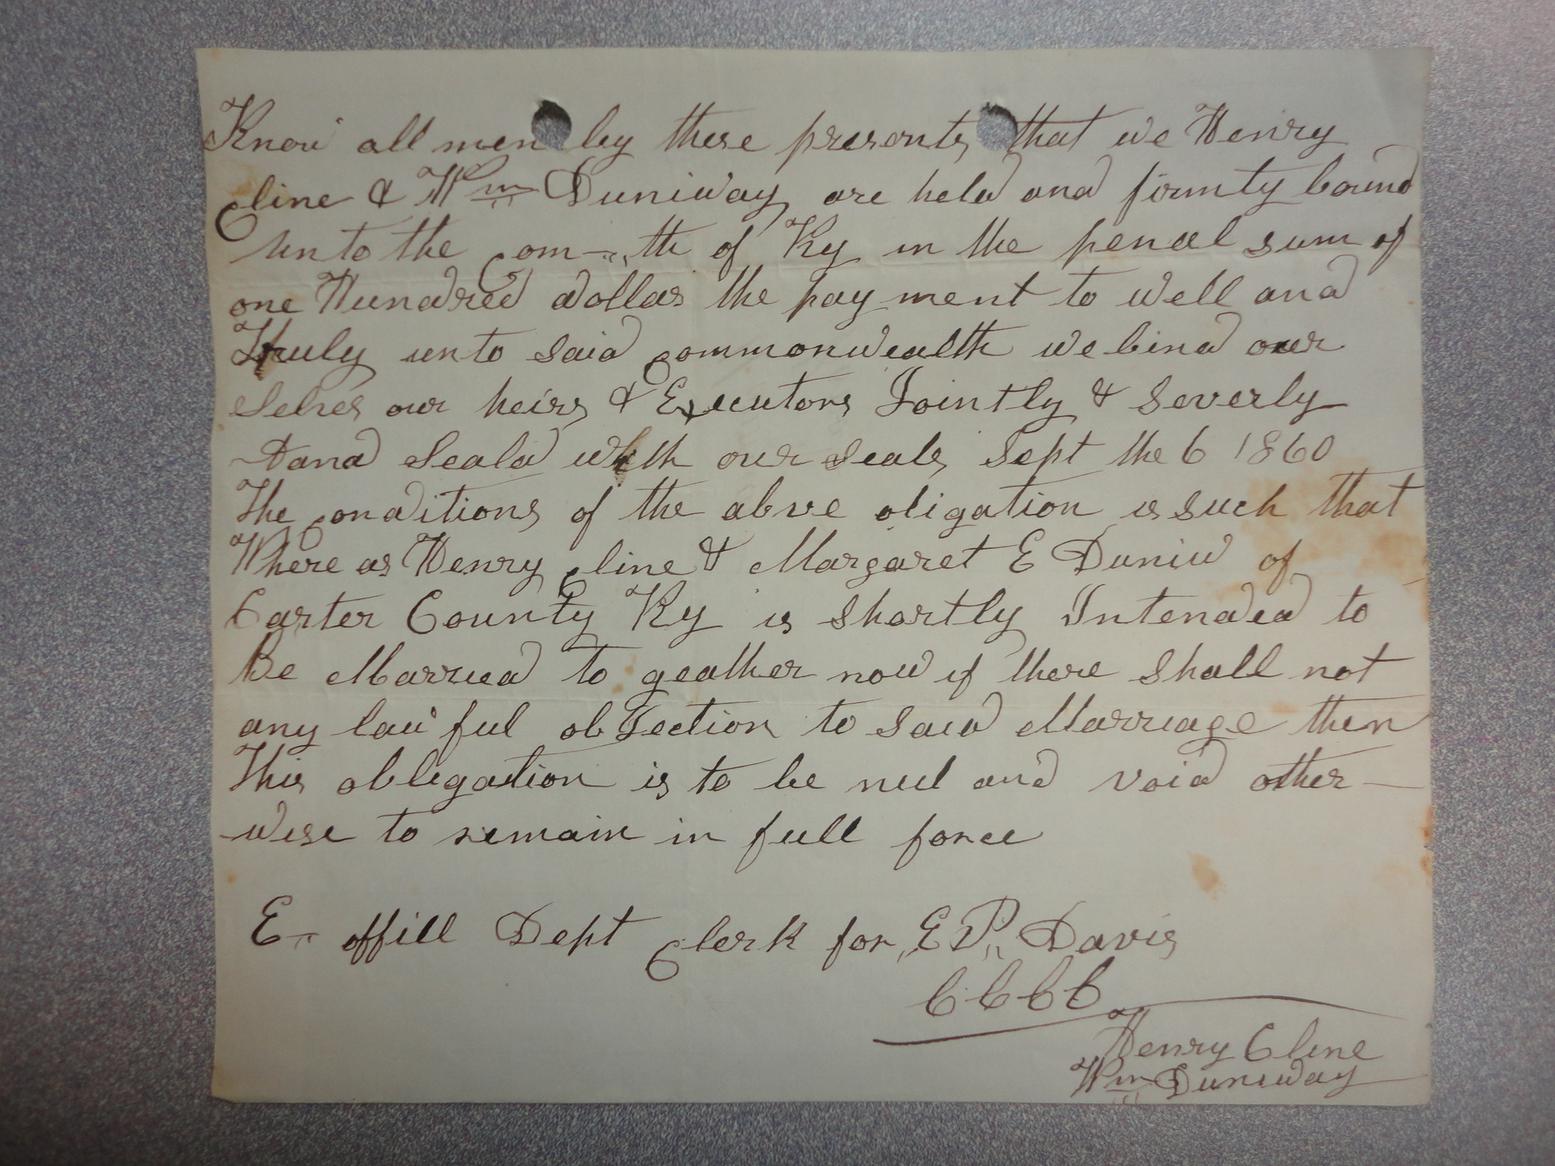 Know all men by these presents that we Henry
Cline & Wm Duniway are held and firmty bound
unto the Com-th of Ky in the penal sum of
one Hundred dollas the pay ment to well and
Truly unto said commonwealth we bind our
selves our heirs & Executors Jointly & Severly
and Seald with our seals Sept the 6 1860
The conditions of the abve oligation is such that
Where as Henry Cline & Margaret E Duniw of
Carter County Ky is shortly Intended to
Be Married to geather now if there shall not
any law ful obJection to said Marriage then
This obligation is to be null and void other-
wise to remain in full force
E. offill Dept Clerk for E P Davis
CCCC
Henry Cline
Wm Duniway